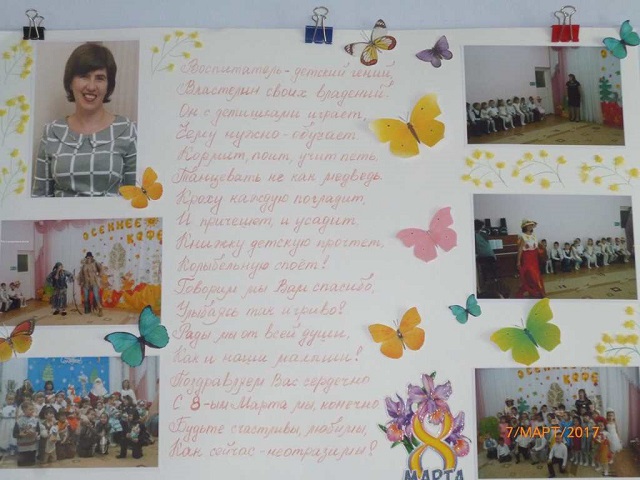 Воспитатель - детский гений,
Властелин своих владений.
Он с детишками играет,
Чему нужно - обучает.
Кормит, поит, учит петь,
Танцевать не как медведь.
Кроху каждую погладит,
И причешет, и усадит.
Книжку детскую прочтет,
Колыбельную споёт!
Говорим мы Вам спасибо,
Улыбаясь так игриво!
Рады мы от всей души,
Как и наши малыши!
Поздравляем Вас сердечно
С 8-ым Марта мы, конечно
Будьте счастливы, любимы,
Как сейчас - неотразимы!
ОСЕННЕЕ
КАФЕ
ОСЕННЕЕ
КАФЕ
8
МАРТА
7/МАРТ/2017